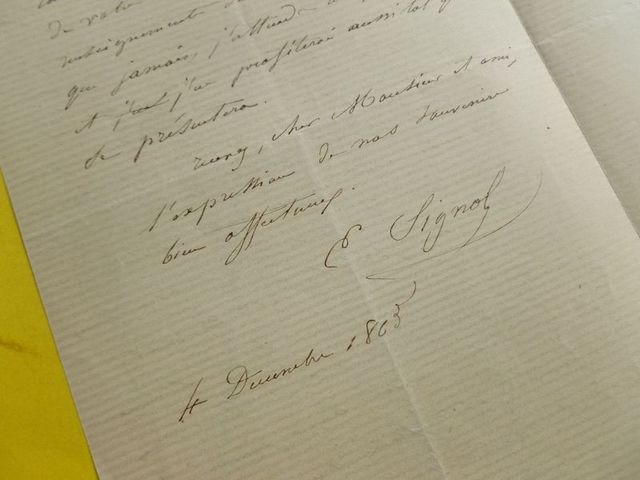 de votre
renseignements
que jamais, j'attends
et j'en profiterai aussitôt q
se présentera.
cher Monsieur et ami,
l'expression de nos souvenirs
bien affectueux.
E Signol
4 Decembre 1863